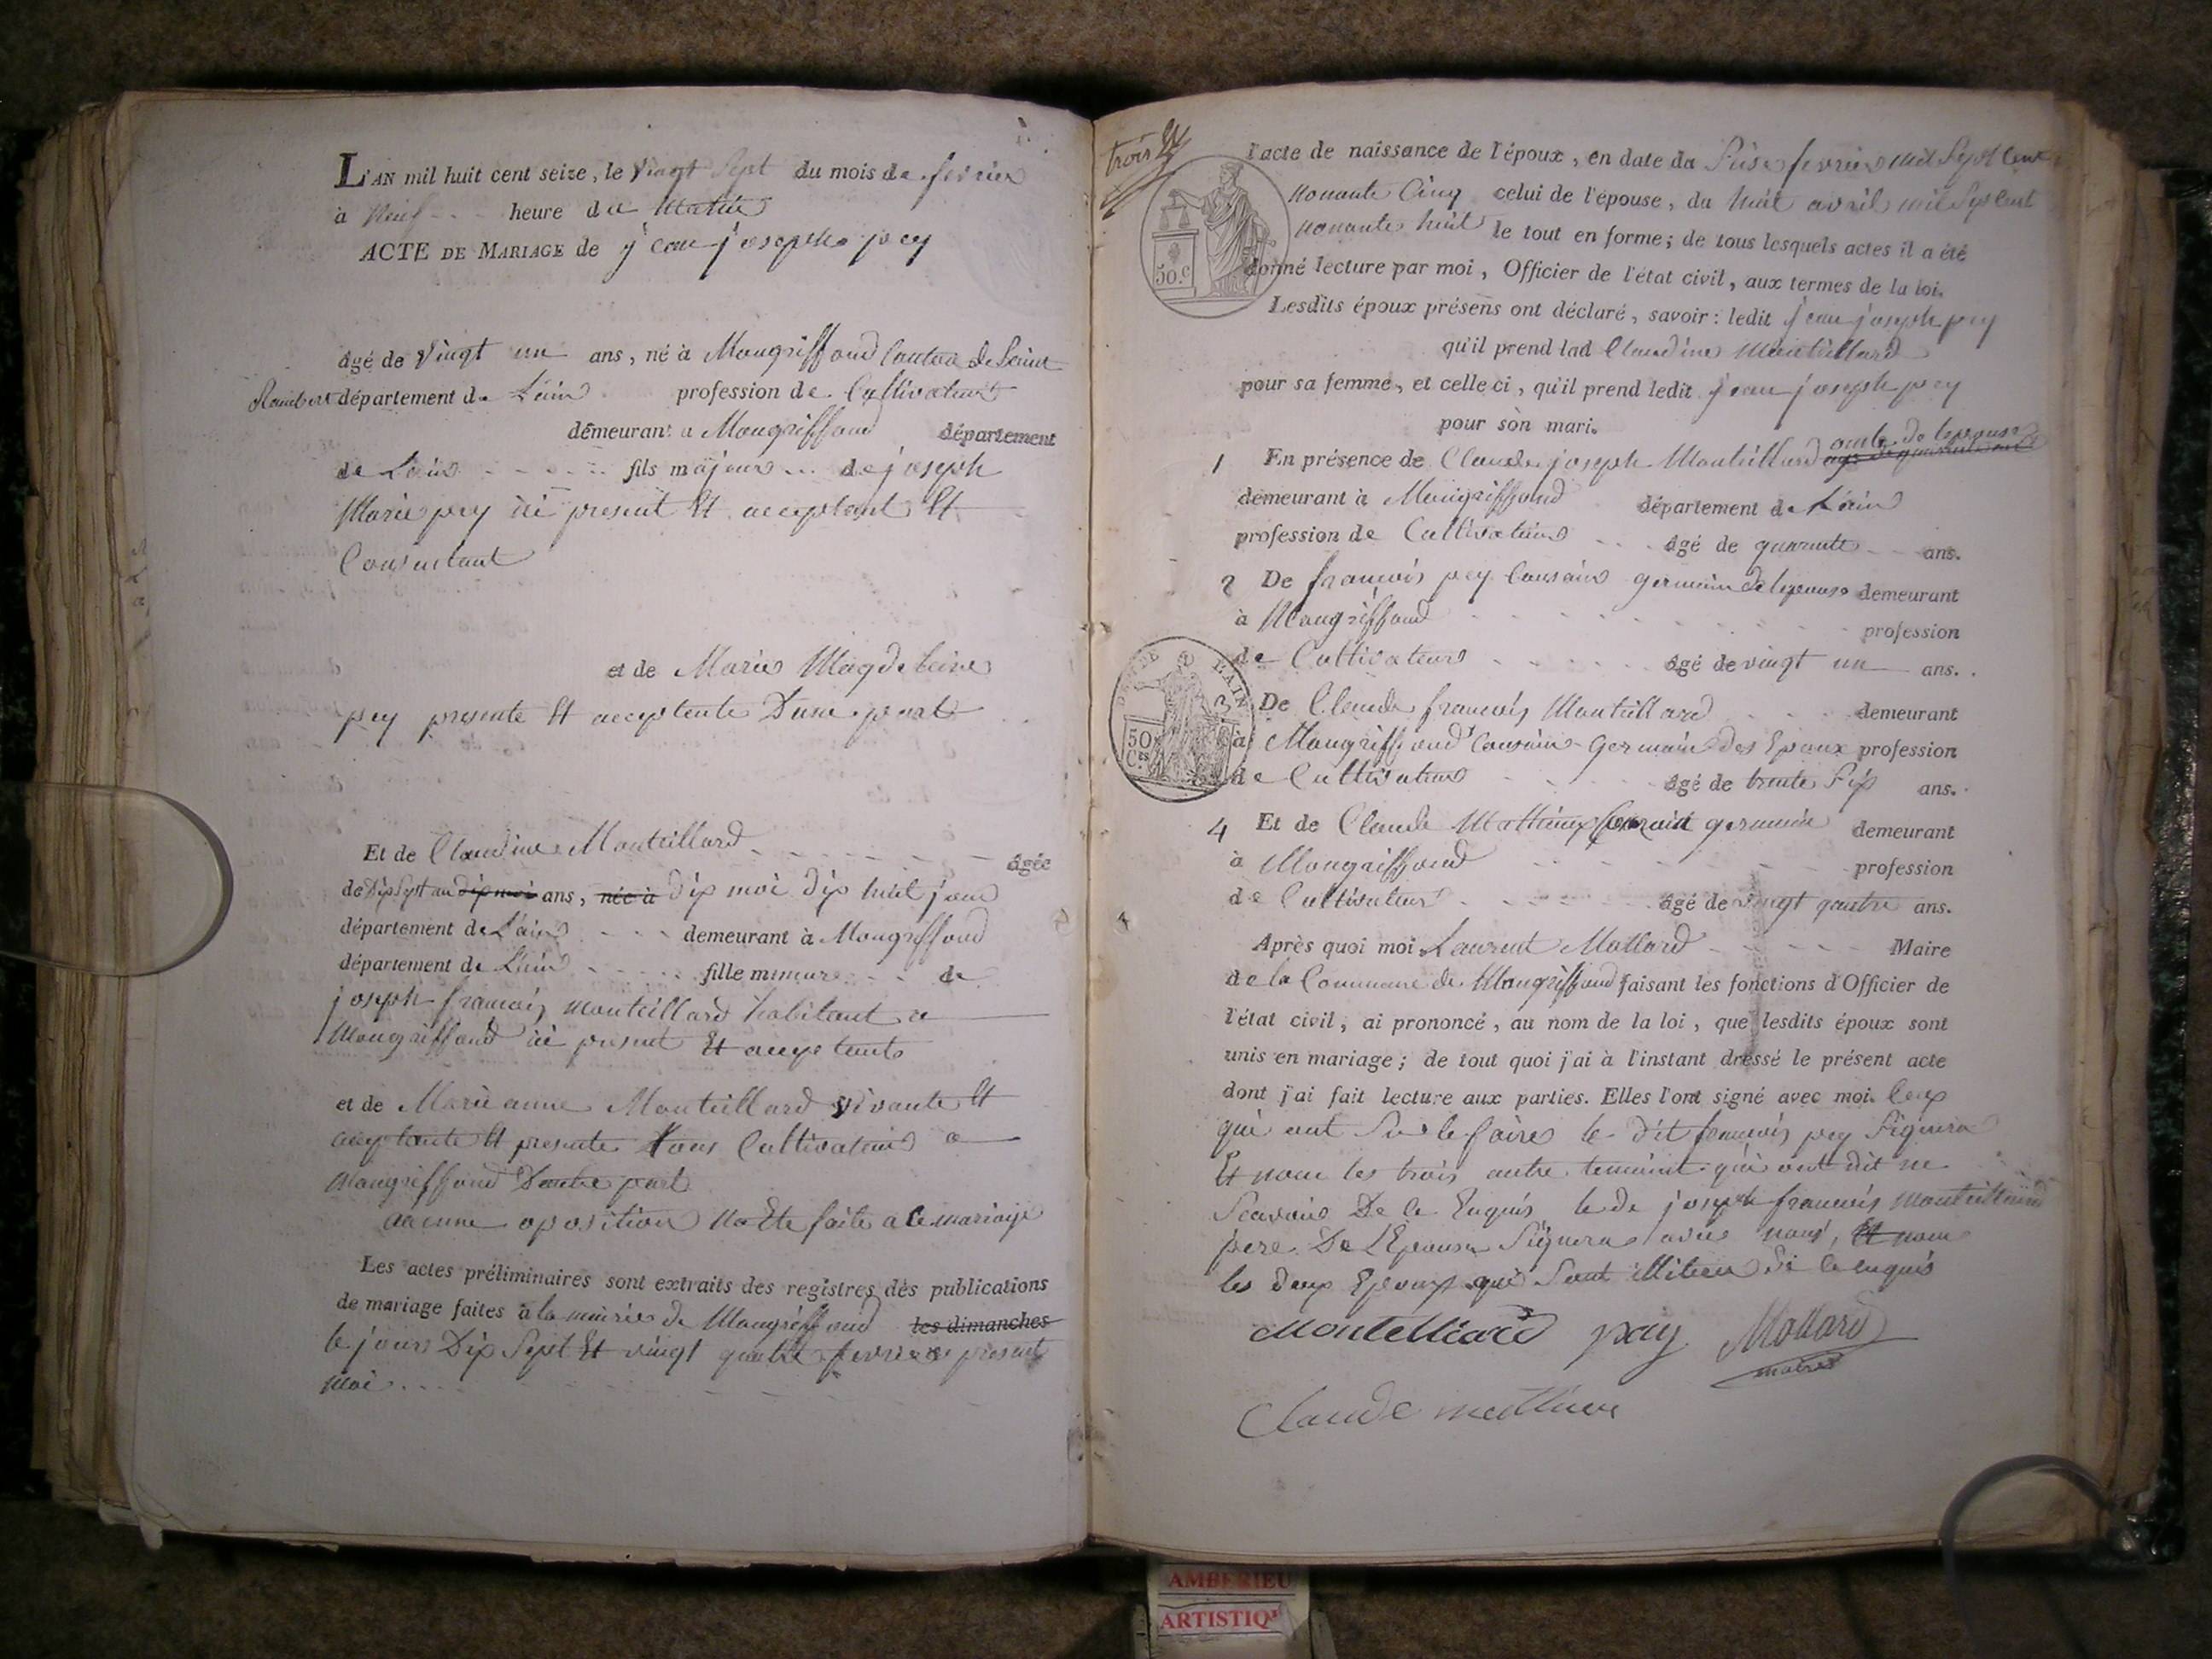 L'AN mil huit cent seize, le vingt sept du mois de fevrier
à Neuf heure du Matin
ACTE DE MARIAGE de jean joseph pey
âgé de vingt un ans, né à Mongriffond Canton de Saint
Rambert département de Lain profession de Cultivateur
demeurant a Mongriffond département
de Lain fils majeur de joseph
Marie pey ici present Et acceptant Et
Consentant
et de Marie Magdeleine
pey presente Et acceptente Dune part
Et de Claudine Monteillard âgée
de Dix Sept an dix moi ans, née à dix moi dix huit jour
département de Lain demeurant à Mongriffond
département de Lain fille mineure de
joseph francois monteillard habitant a
Mongriffond ici present Et acceptente
et de Marie anne Monteillard vivante Et
acceptante Et presente tous Cultivateurs a
Mongriffond Dautre part
aucune oposition na Ete faite a Ce mariage
Les actes préliminaires sont extraits des registres des publications
de mariage faites à la mairie de Mongriffond les dimanches
le jours Dix Sept Et vingt quatre fevrier present
moi
trois
l'acte de naissance de l'époux, en date du Seise fevrier mil Sept Cent
nonante Cinq celui de l'épouse, du huit avril mil Sept Cent
nonante huit le tout en forme; de tous lesquels actes il a été
donné lecture par moi, Officier de l'état civil, aux termes de la loi.
50.c
Lesdits époux présens ont déclaré, savoir: ledit jean joseph pey
qu'il prend lad Claudine Monteillard
pour sa femme, et celle ci, qu'il prend ledit jean joseph pey
pour son mari.
oncle de lepouse
1 En présence de Claude joseph Monteillard
demeurant à Mongriffond département de Lain
profession de Cultivateur âgé de quarante ans.
2 De francois pey Cousain germain de lepouse demeurant
à Mongriffond profession
de Cultivateur âgé de vingt un ans.
3 De Claude francois Monteillard demeurant
à Mongriffond Cousain Germain des Epoux profession
50 Cs
de Cultivateur âgé de trente Six ans.
4 Et de Claude Mathieux Cousain germain demeurant
à Mongriffond profession
de Cultivateur âgé de vingt quatre ans.
Après quoi moi Laurent Mollard Maire
de la Commune de Mongriffond faisant les fonctions d'Officier de
l'état civil, ai prononcé, au nom de la loi, que lesdits époux sont
unis en mariage; de tout quoi j'ai à l'instant dressé le présent acte
dont j'ai fait lecture aux parties. Elles l'ont signé avec moi. Ceux
qui ont Su le faire le dit francois pey Signera
Et nom les trois autre temoint qui ont dit ne
Scavoir De Ce Enquis le de joseph francois monteillard
pere De LEpouse Signera avec nous, Et nom
les deux Epoux qui Sont de Ce enquis
Monteilliard pey Mollard
maire
Claude mathieu
AMBERIEU
ARTISTIQ